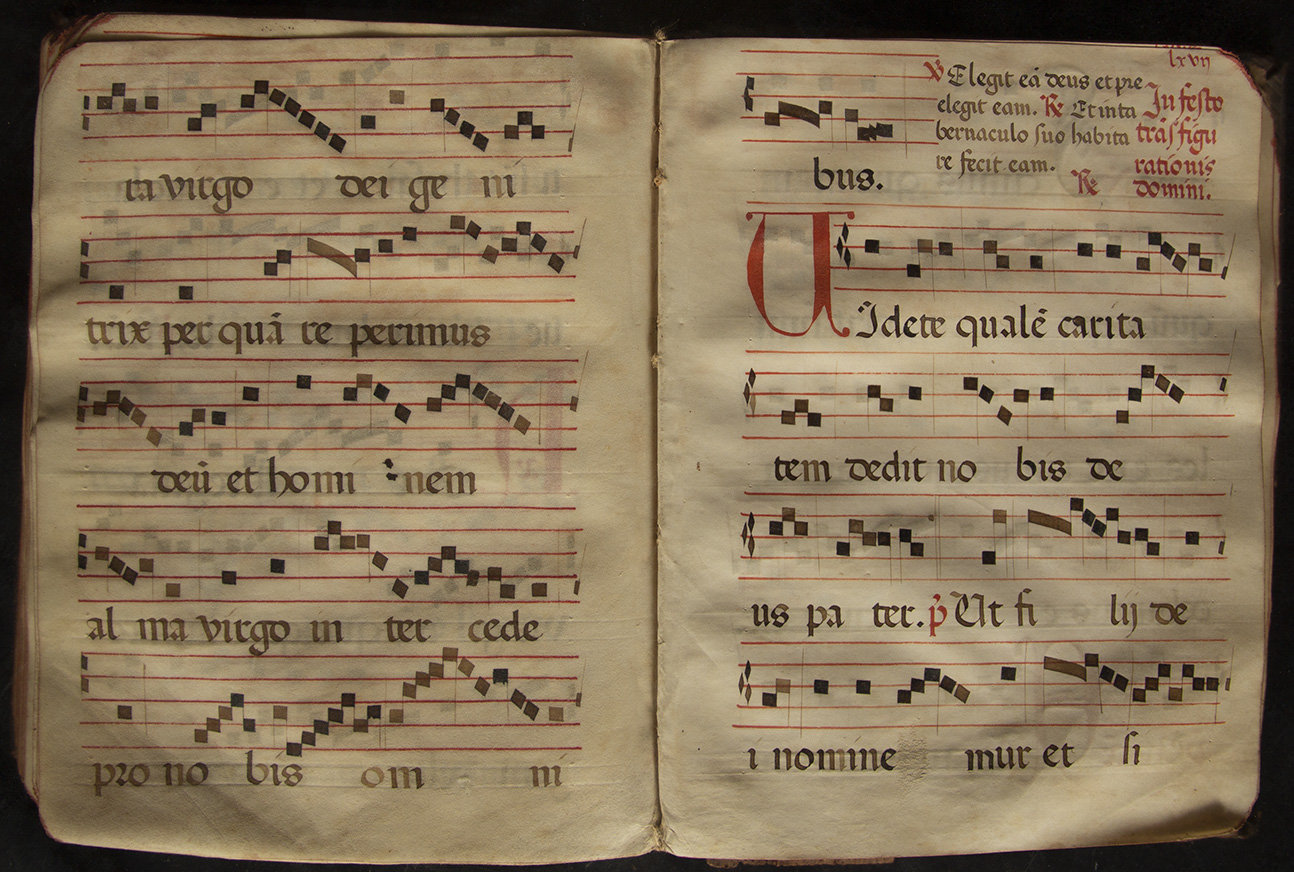 ta virgo dei ge ni
trix per quā re perimus
deū et homi nem
al ma virgo in ter cede
pro no bis om ni
lxvij
bus.
℣ Elegit eā deus et pre
elegit eam. ℟ Et in ta
bernaculo suo habita
re fecit eam.
In festo
trāsfigu
rationis
℟ domini.
UIdete qualē carita
tem dedit no bis de
us pa ter. p̄ Ut fi lij de
i nomine mur et si